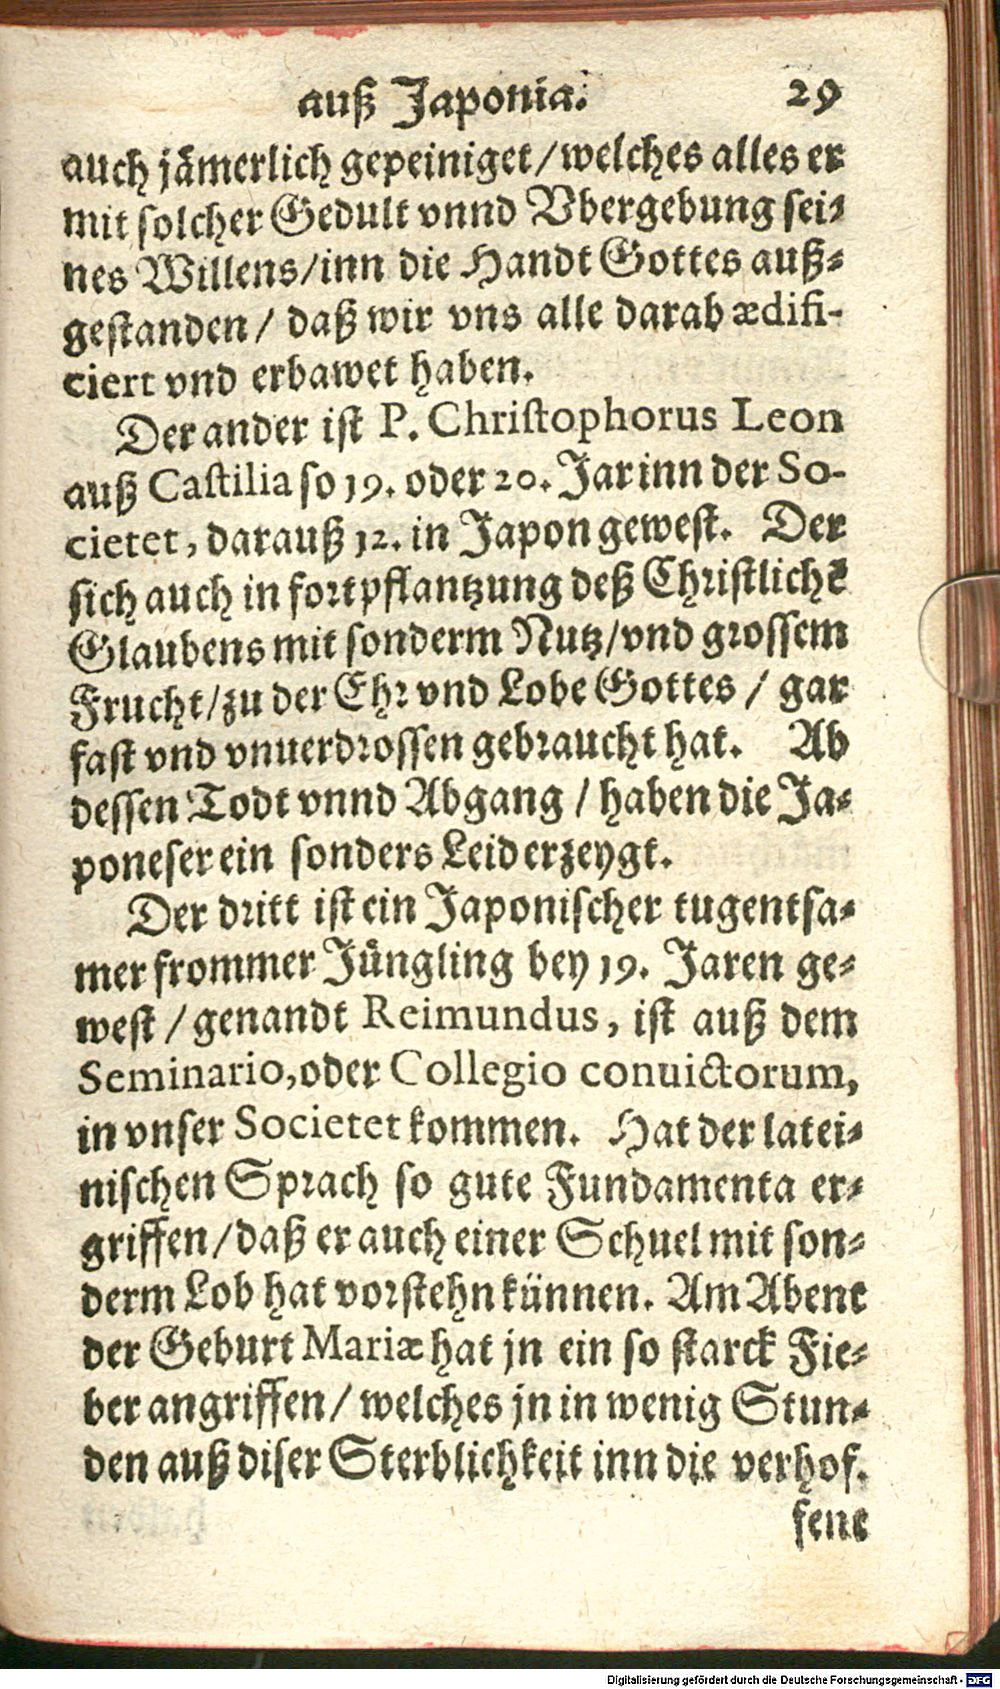 auß Japonia. 29
auch jämerlich gepeiniget/welches alles er
mit solcher Gedult vnnd Vbergebung sei-
nes Willens/inn die Handt Gottes auß-
gestanden/ daß wir vns alle darab ædifi-
ciert vnd erbawet haben.
Der ander ist P. Christophorus Leon
auß Castilia so 19. oder 20. Jar inn der So-
cietet, darauß 12. in Japon gewest. Der
sich auch in fortpflantzung deß Christlichẽ
Glaubens mit sonderm Nutz/vnd grossem
Frucht/zu der Ehr vnd Lobe Gottes / gar
fast vnd vnuerdrossen gebraucht hat. Ab
dessen Todt vnnd Abgang / haben die Ja-
poneser ein sonders Leid erzeygt.
Der dritt ist ein Japonischer tugentsa-
mer frommer Jüngling bey 19. Jaren ge-
west / genandt Reimundus, ist auß dem
Seminario, oder Collegio conuictorum,
in vnser Societet kommen. Hat der latei-
nischen Sprach so gute Fundamenta er-
griffen/daß er auch einer Schuel mit son-
derm Lob hat vorstehn künnen. Am Abent
der Geburt Mariæ hat jn ein so starck Fie-
ber angriffen/ welches jn in wenig Stun-
den auß diser Sterblichkeit inn die verhof-
fent
Digitalisierung gefördert durch die Deutsche Forschungsgemeinschaft - DFG